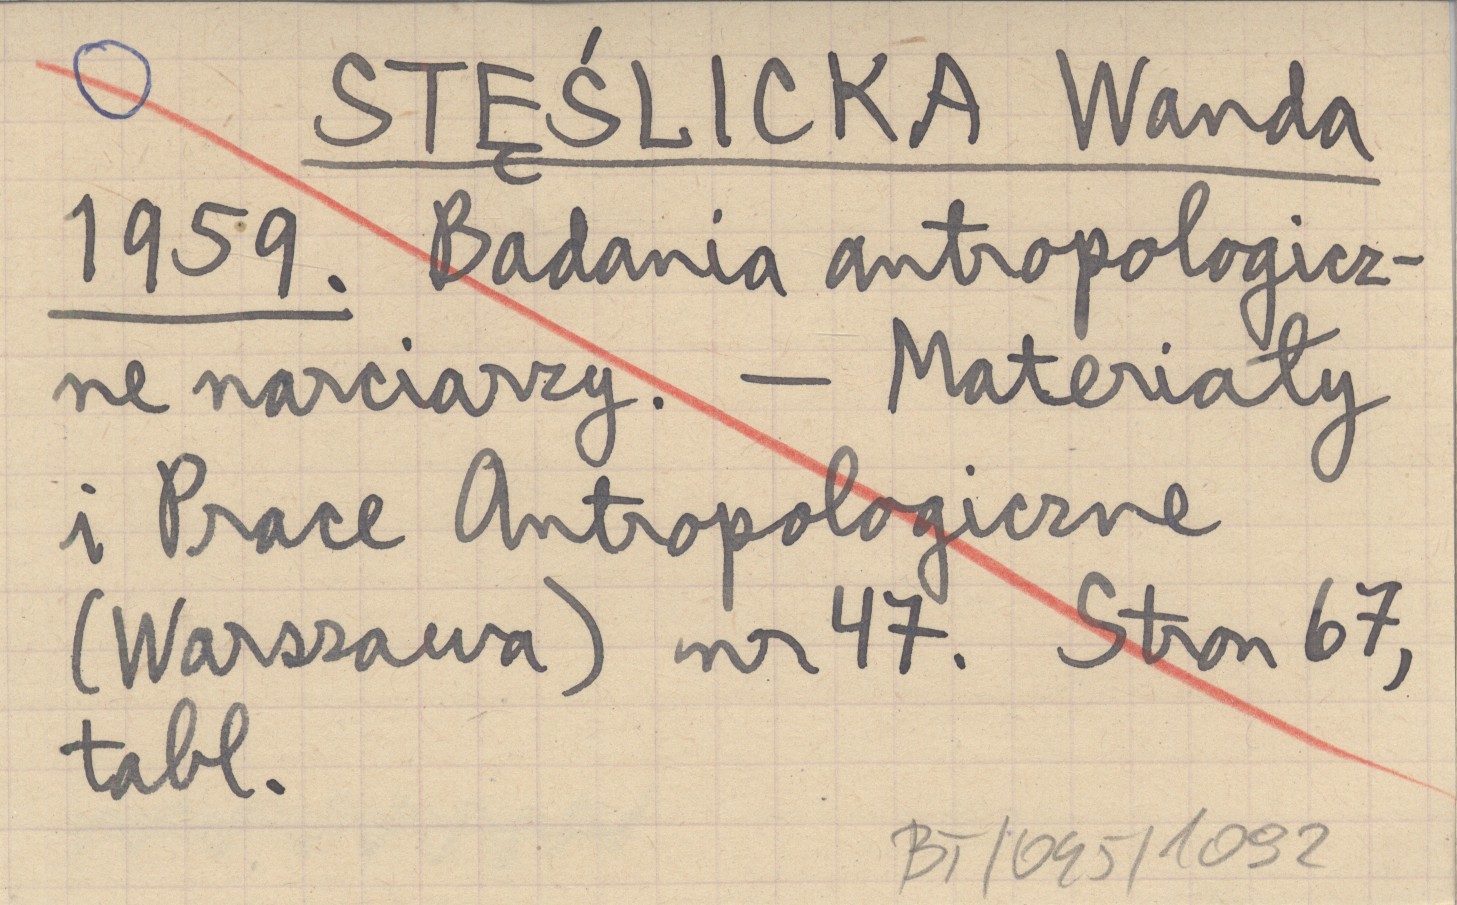 STĘŚLICKA Wanda
1959. Badania antropologicz-
ne narciarzy. — Materiały
i Prace Antropologiczne
(Warszawa) nr 47. Stron 67,
tabl.
BT/095/1092